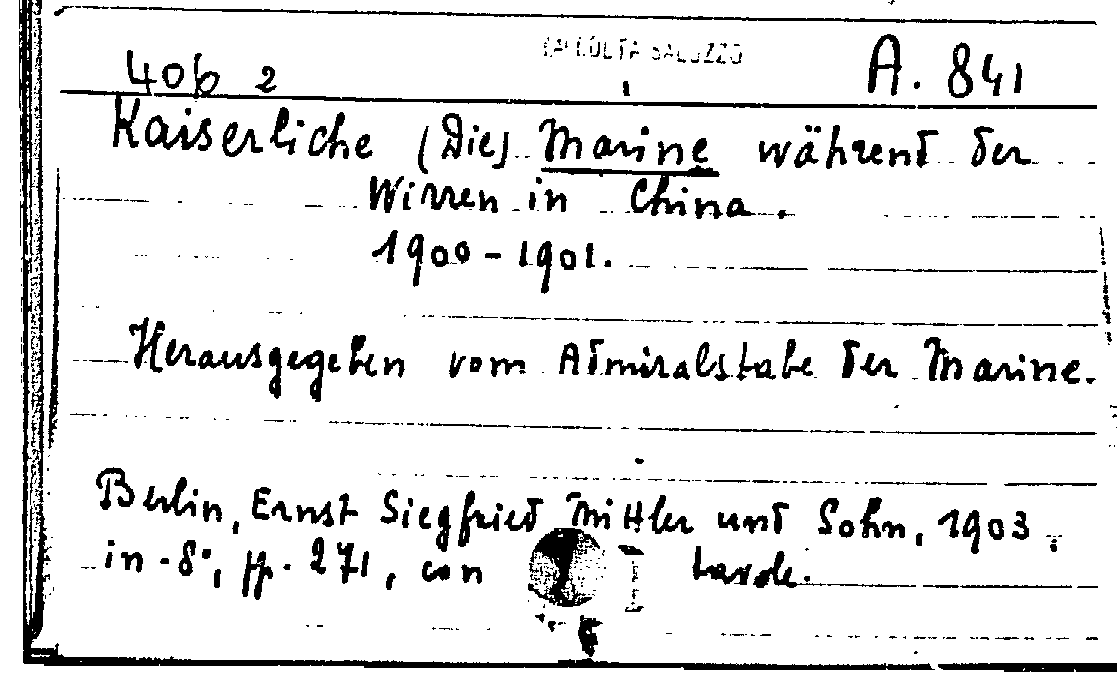 RACCOLTA SALUZZO
406 2 A. 841
Kaiserliche (Die) Marine während der
Wirren in China.
1900-1901.
Herausgegeben vom Admiralstabe der Marine.
Berlin, Ernst Siegfried Mittler und Sohn, 1903.
in-8°, pp. 271, con tavole.